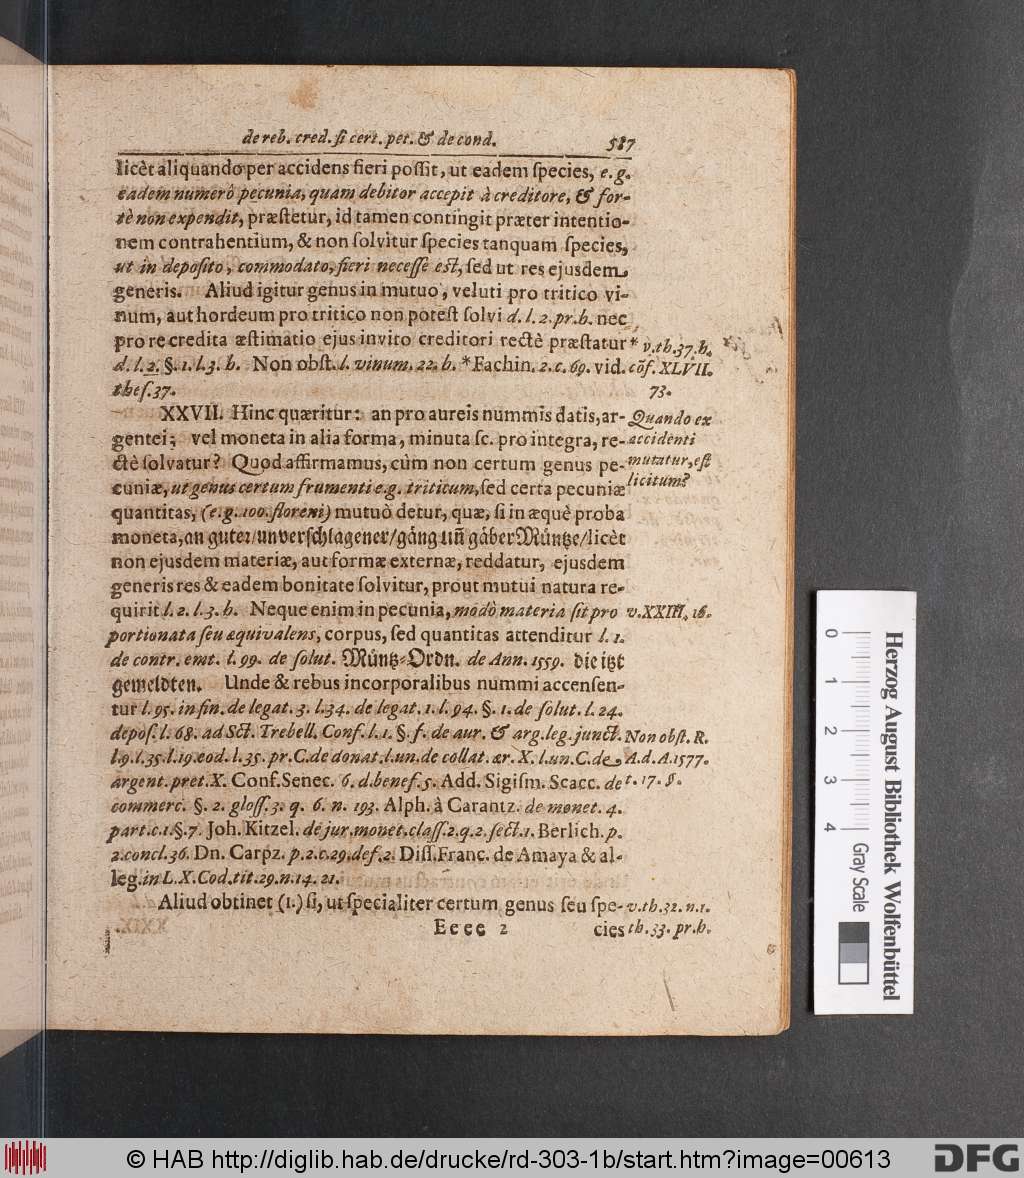 de reb. cred. ſi cert. pet. & de cond. 587
licèt aliquando per accidens fieri poſſit, ut eadem ſpecies, e. g.
eadem numerô pecunia, quam debitor accepit à creditore, & for-
tè non expendit, præſtetur, id tamen contingit præter intentio-
nem contrahentium, & non ſolvitur ſpecies tanquam ſpecies,
ut in depoſito, commodato, fieri neceſſe eſt, ſed ut res ejusdem
generis. Aliud igitur genus in mutuo, veluti pro tritico vi-
num, aut hordeum pro tritico non poteſt ſolvi d. l. 2. pr. h. nec
pro re credita æſtimatio ejus invito creditori rectè præſtatur * v. th. 37. h.
d. l. 2. §. 1. l. 3. h. Non obſt. l. vinum. 22. h. * Fachin. 2. c. 69. vid. cõſ. XLVII.
theſ. 37. 73.
XXVII. Hinc quæritur: an pro aureis nummis datis, ar- Quando ex
gentei; vel moneta in alia forma, minuta ſc. pro integra, re- accidenti
ctè ſolvatur? Quod affirmamus, cùm non certum genus pe- mutatur, eſt
cuniæ, ut genus certum frumenti e.g. triticum, ſed certa pecuniæ licitum?
quantitas, (e.g. 100. floreni) mutuò detur, quæ, ſi in æquè proba
moneta, an guter/ unverſchlagener/ gäng uñ gäber Müntze/ licèt
non ejusdem materiæ, aut formæ externæ, reddatur, ejusdem
generis res & eadem bonitate ſolvitur, prout mutui natura re-
quirit l. 2. l. 3. h. Neque enim in pecunia, modò materia ſit pro v. XXIII. 16.
portionata ſeu æquivalens, corpus, ſed quantitas attenditur l. 1.
de contr. emt. l. 99. de ſolut. Müntz-Ordn. de Ann. 1559. die itzt
gemeldten. Unde & rebus incorporalibus nummi accenſen-
tur l. 95. in fin. de legat. 3. l. 34. de legat. 1. l. 94. §. 1. de ſolut. l. 24.
depoſ. l. 68. ad Sct. Trebell. Conf. l. 1. §. f. de aur. & arg. leg. junct. Non obſt. R.
l. 9. l. 35. l. 19. eod. l. 35. pr. C. de donat. l. un. de collat. ær. X. l. un. C. de A. d. A. 1577.
argent. pret. X. Conf. Senec. 6. d. benef. 5. Add. Sigiſm. Scacc. de t. 17. §.
commerc. §. 2. gloſſ. 3. q. 6. n. 193. Alph. à Carantz. de monet. 4.
part. c. 1. §. 7. Joh. Kitzel. de jur. monet. claſſ. 2. q. 2. ſect. 1. Berlich. p.
2. concl. 36. Dn. Carpz. p. 2. c. 29. def. 2. Diſſ. Franc. de Amaya & al-
leg. in L. X. Cod. tit. 29. n. 14. 21.
Aliud obtinet (1.) ſi, ut ſpecialiter certum genus ſeu ſpe- v. th. 32. n. 1.
Eeee 2 cies th. 33. pr. h.
Herzog August Bibliothek Wolfenbüttel
Gray Scale
0 1 2 3 4
© HAB http://diglib.hab.de/drucke/rd-303-1b/start.htm?image=00613
DFG